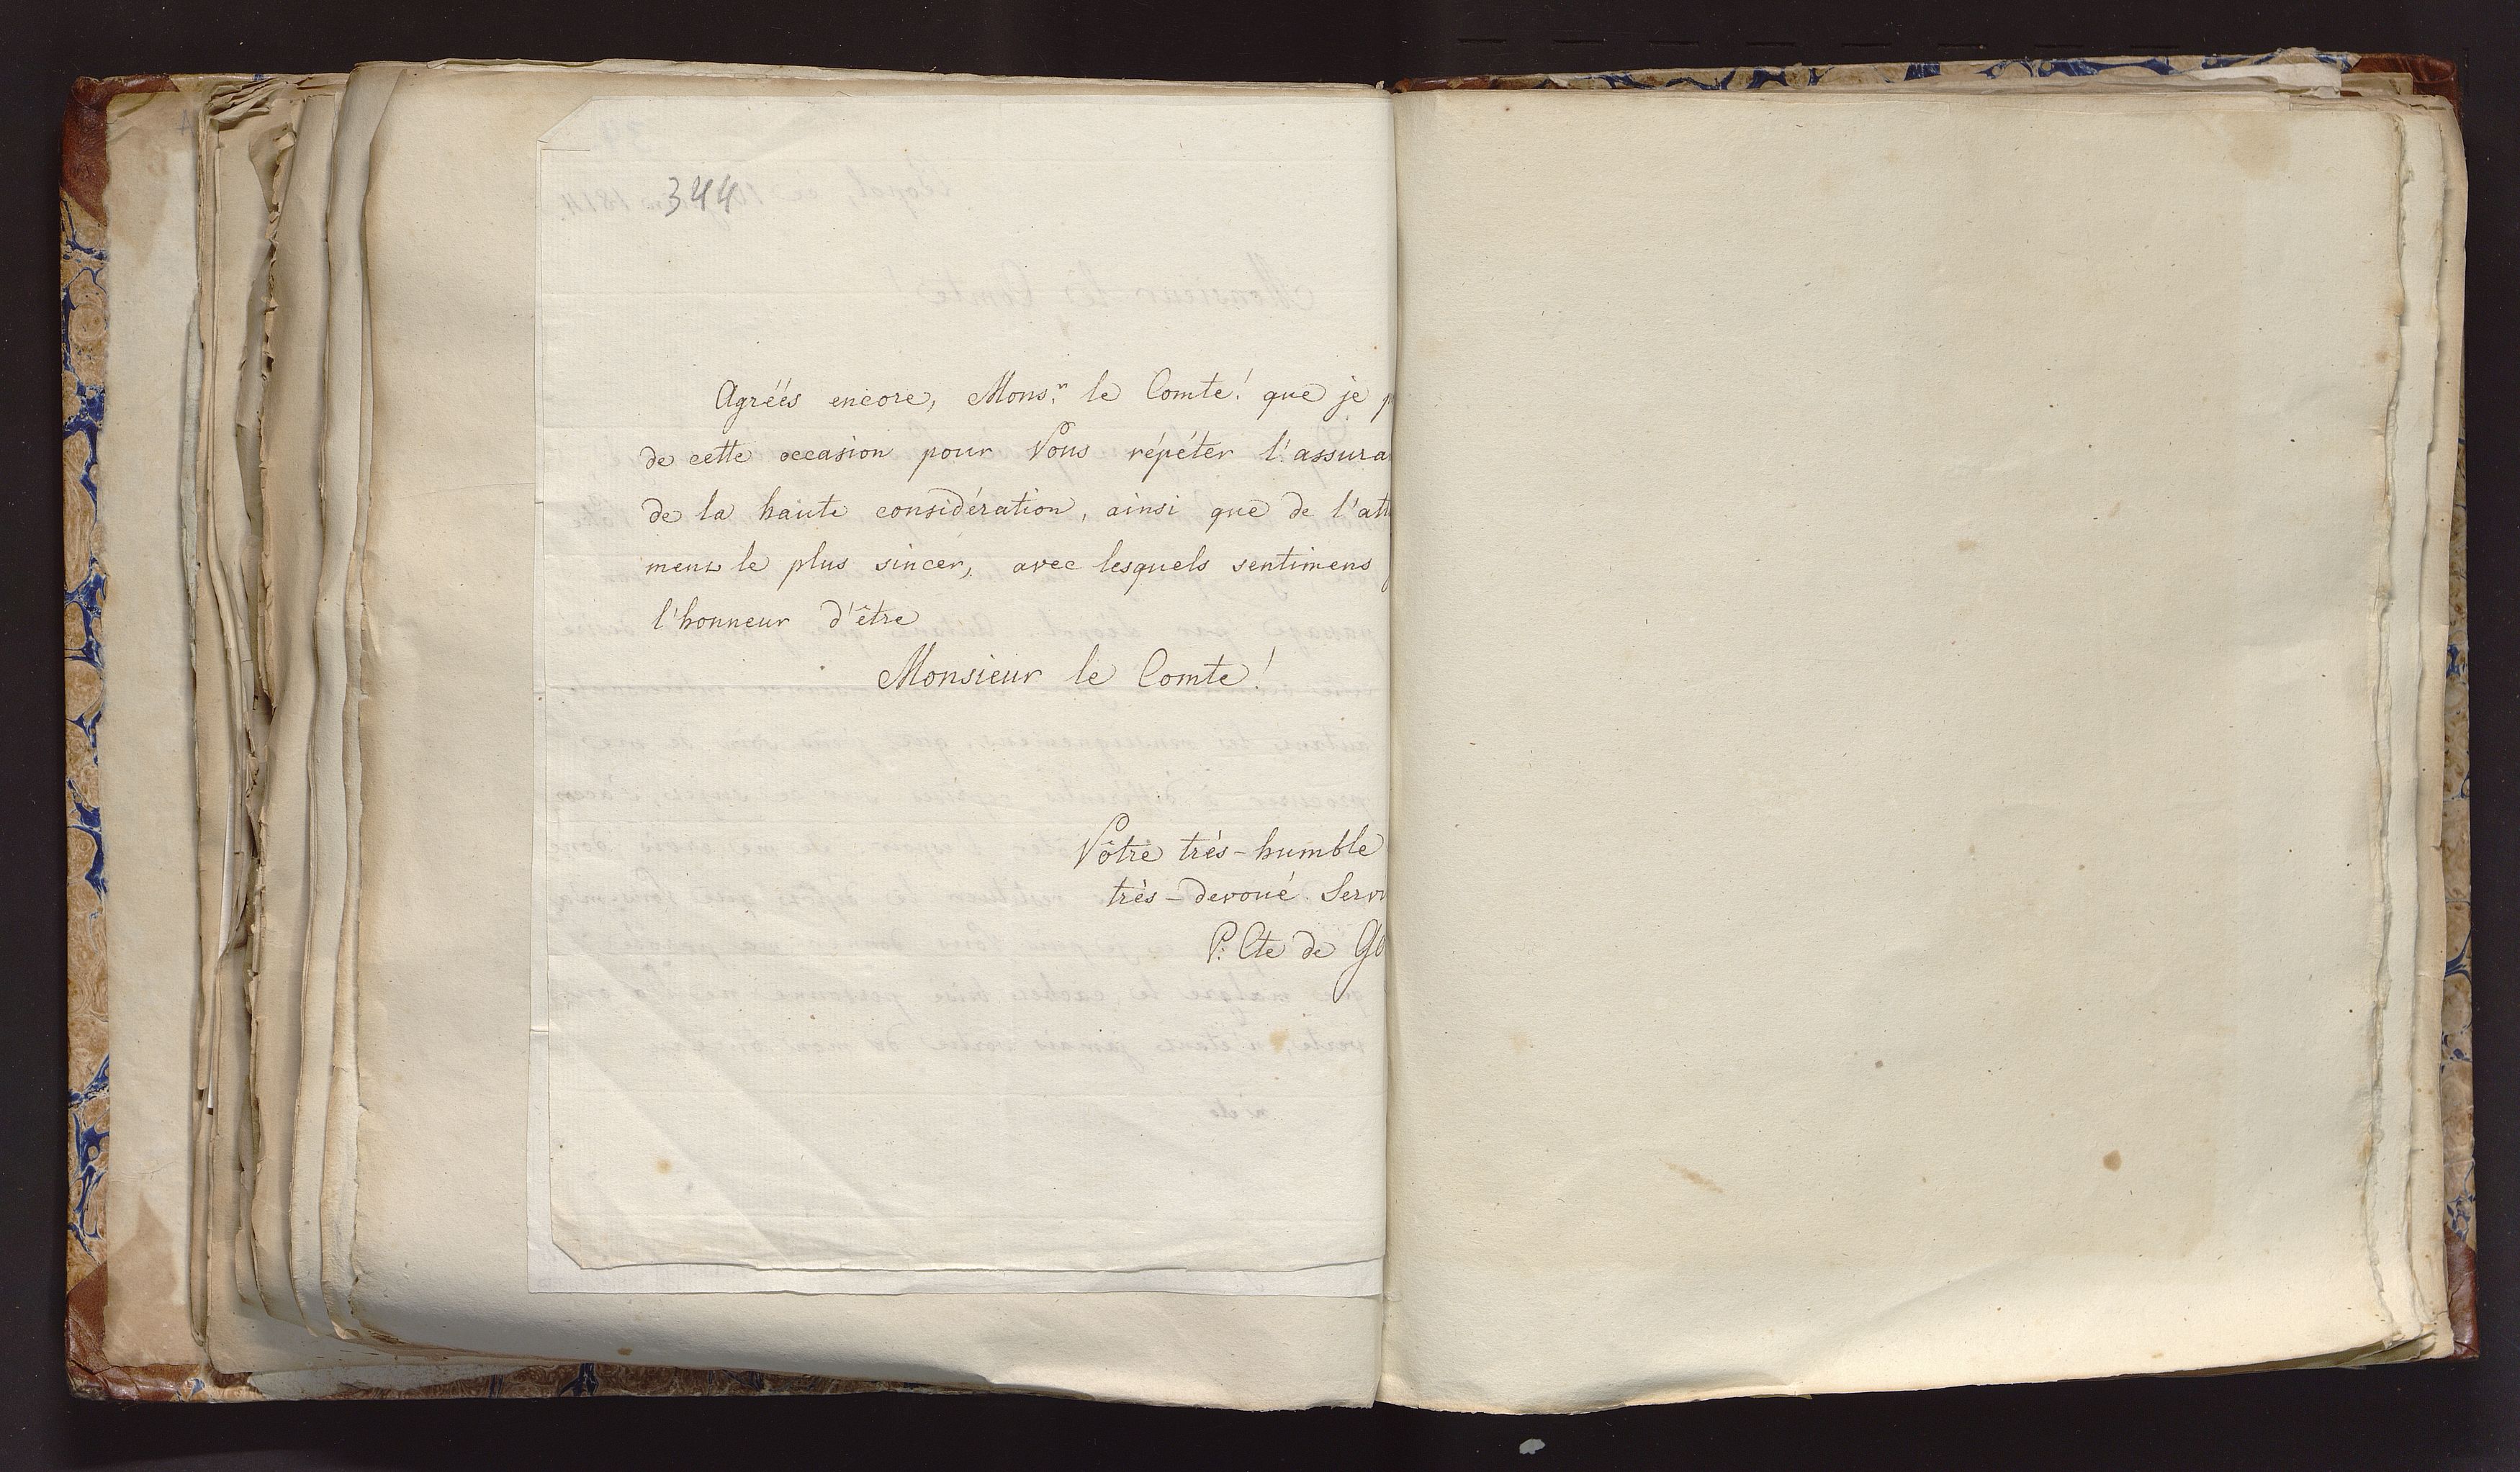 344
Agréés encore, Mons.r le Comte! que je p
de cette occasion pour Vous répéter l'assura
de la haute considération, ainsi que de l'att
ment le plus sincer, avec lesquels sentimens
l'honneur d'être
Monsieur le Comte!
Vôtre très-humble
très-devoué Serv
P: Cte de Go